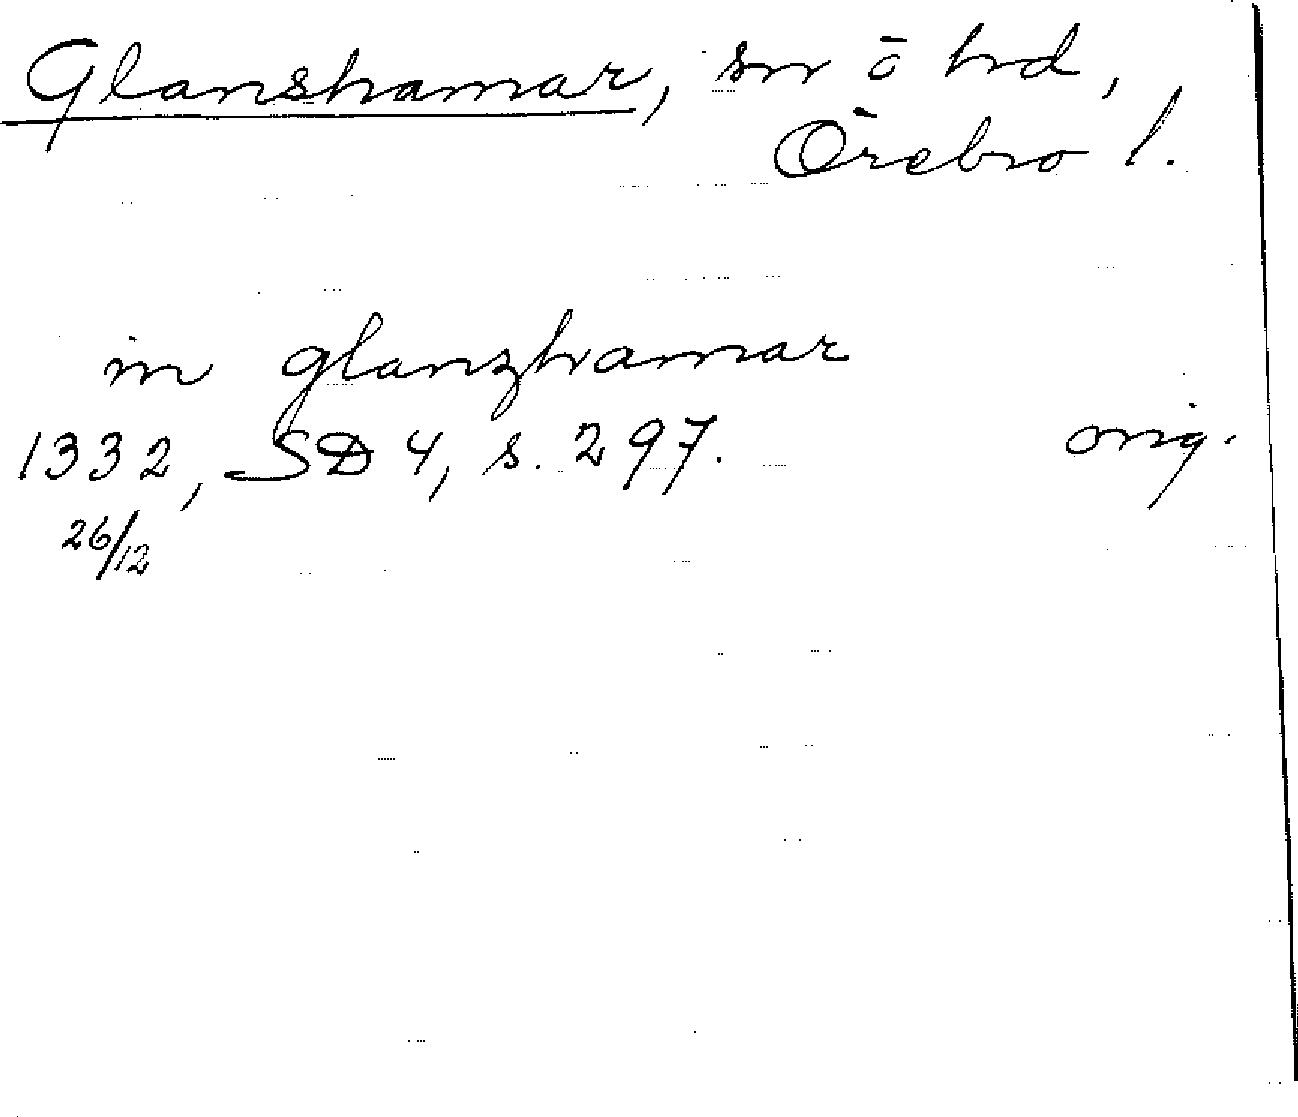 Glanshamar, sn ō hd,
Örebro l.
in glanzhamar
1332, SD 4, s. 297. orig.
26/12